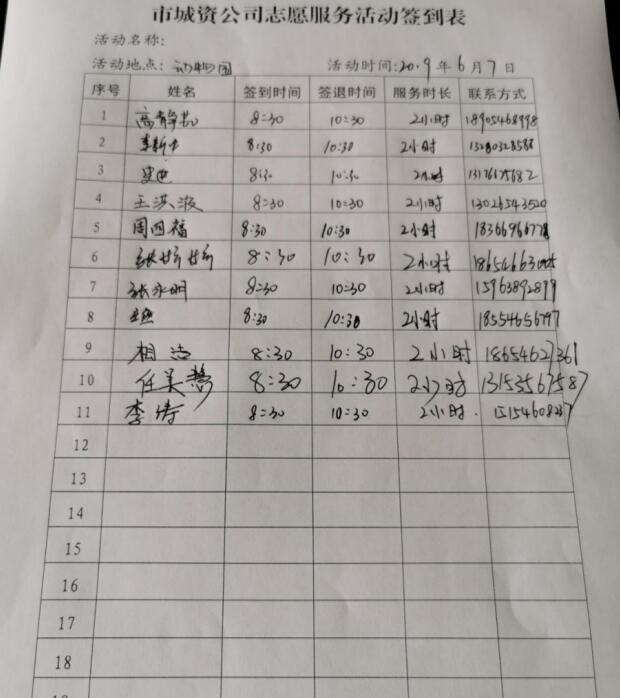 市城资公司志愿服务活动签到表
活动名称:
活动地点: 动物园 活动时间:2019年6月7日
序号 姓名 签到时间 签退时间 服务时长 联系方式
1 8:30 10:30 2小时 18905468998
2 8:30 10:30 2小时 13280328588
3 8:30 10:30 2小时 13176675682
4 王洪波 8:30 10:30 2小时 13026543520
5 周四福 8:30 10:30 2小时 18366966778
6 张娇娇 8:30 10:30 2小时
7 张永明 8:30 10:30 2小时 15963892899
8 8:30 10:30 2小时 18554656797
9 相洁 8:30 10:30 2小时 18654627361
10 任美慧 8:30 10:30 2小时 13153567587
11 李涛 8:30 10:30 2小时.
12
13
14
15
16
17
18